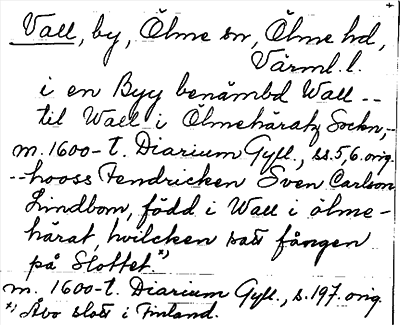 Vall, by, Ölme sn, Ölme hd,
Värml. l.
i en Byy benämbd Wall --
til Wall i Ölmehäratz Sockn,-
m. 1600-t. Diarium Gyll., ss. 5, 6. orig.
--hooss Fendricken Sven Carlson
Lindbom, född i Wall i ölme-
härat, hvilcken satt fången
på Slottet.*)
m. 1600-t. Diarium Gyll., s. 197. orig.
*) Åbo slott i Finland.